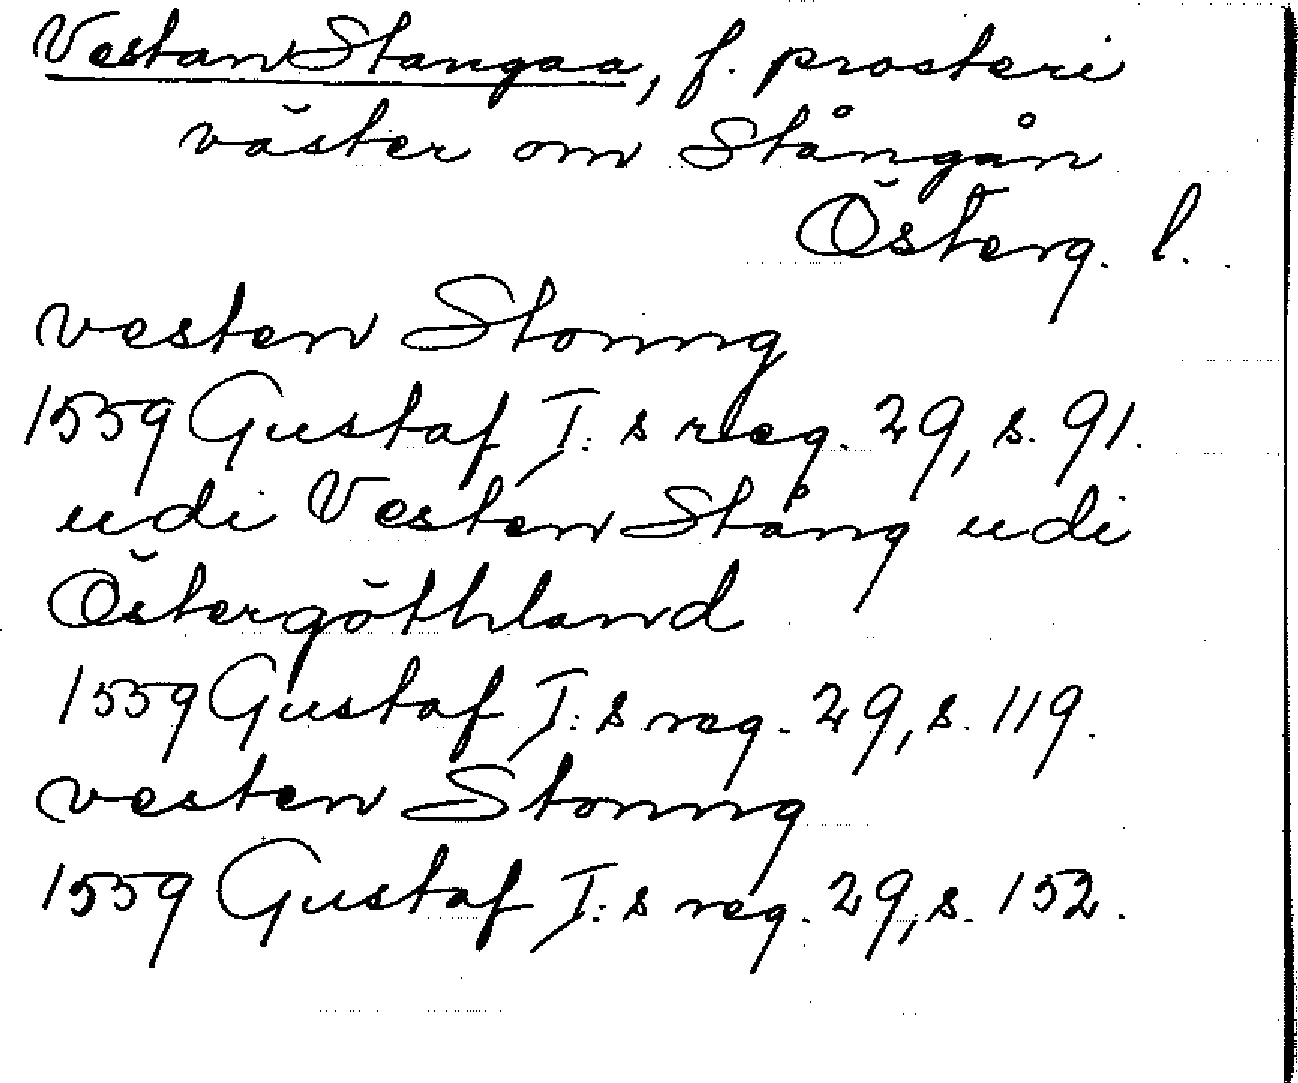 Vestan Stangaa, f. prosteri
väster om Stångån
Österg. l.
vesten Stonng
1559 Gustaf I:s reg. 29, s. 91.
udi Vesten Stång udi
Östergöthland
1559 Gustaf I:s reg. 29, s. 119.
vesten Stonng
1559 Gustaf I:s reg. 29, s. 152.